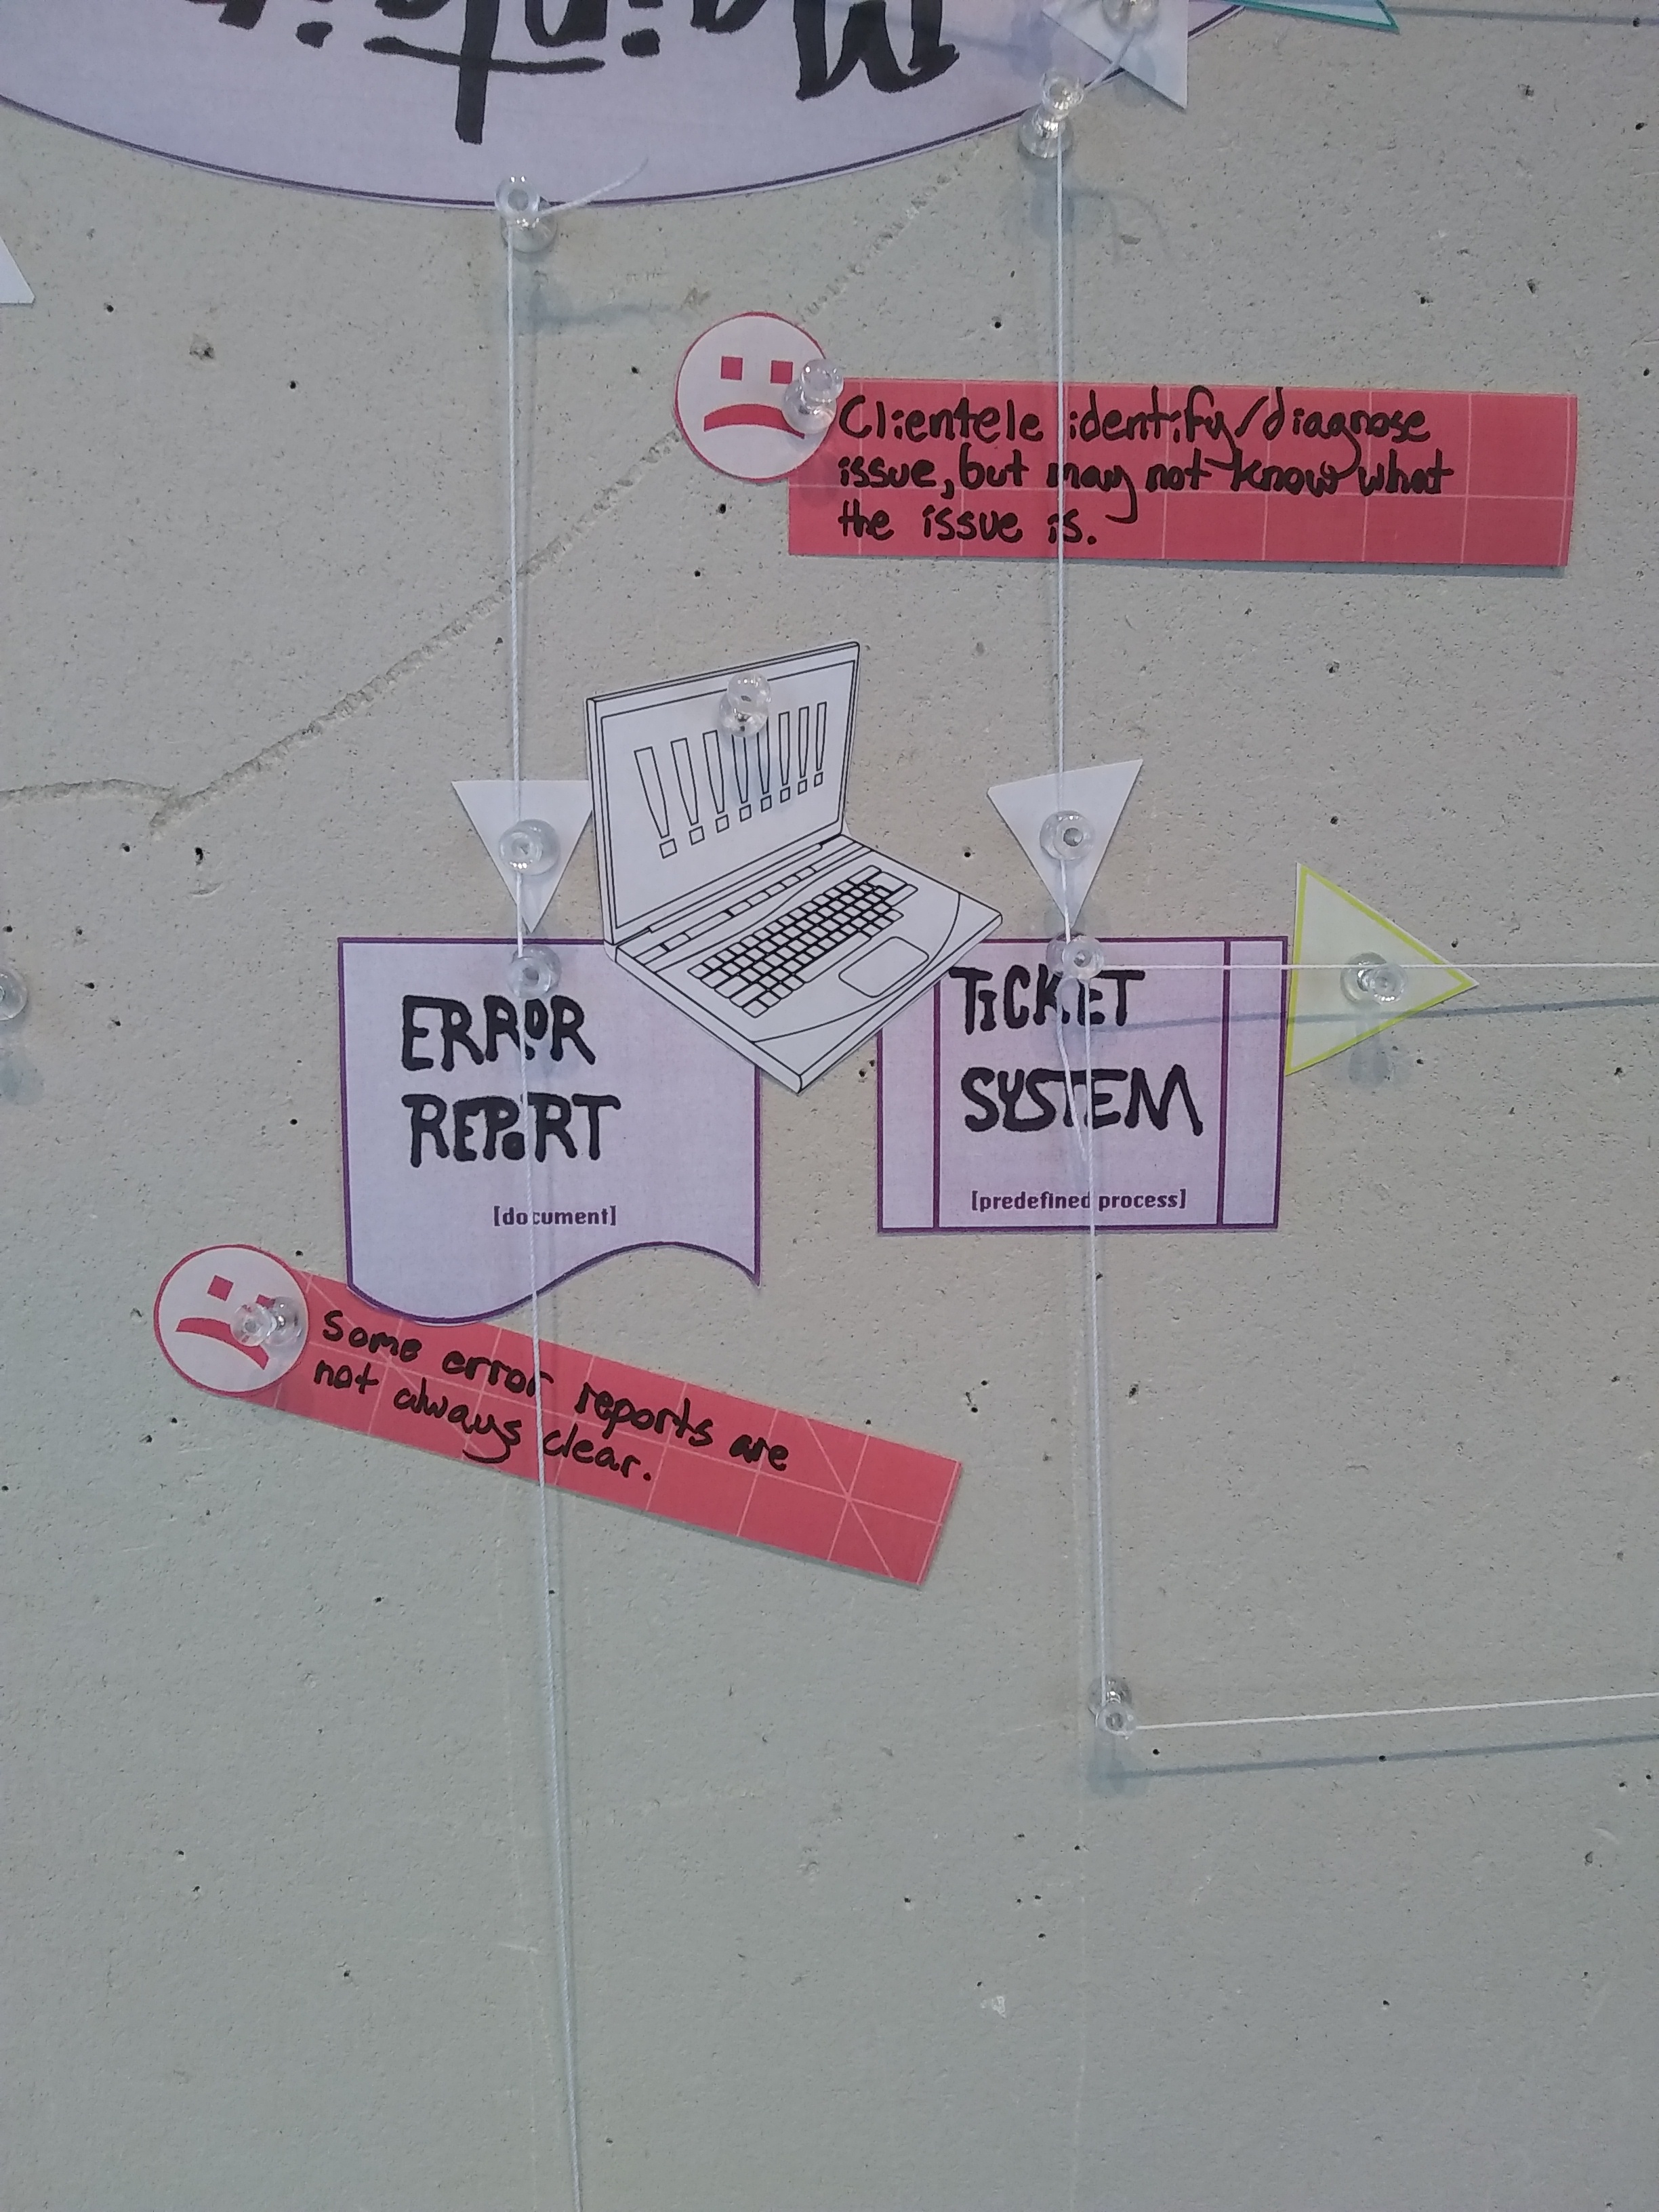 Clientele identify/diagnose
issue, but may not know what
the issue is.
!!!!!!!!
ERROR
REPORT
[document]
TICKET
SYSTEM
[predefined process]
Some error reports are
not always clear.